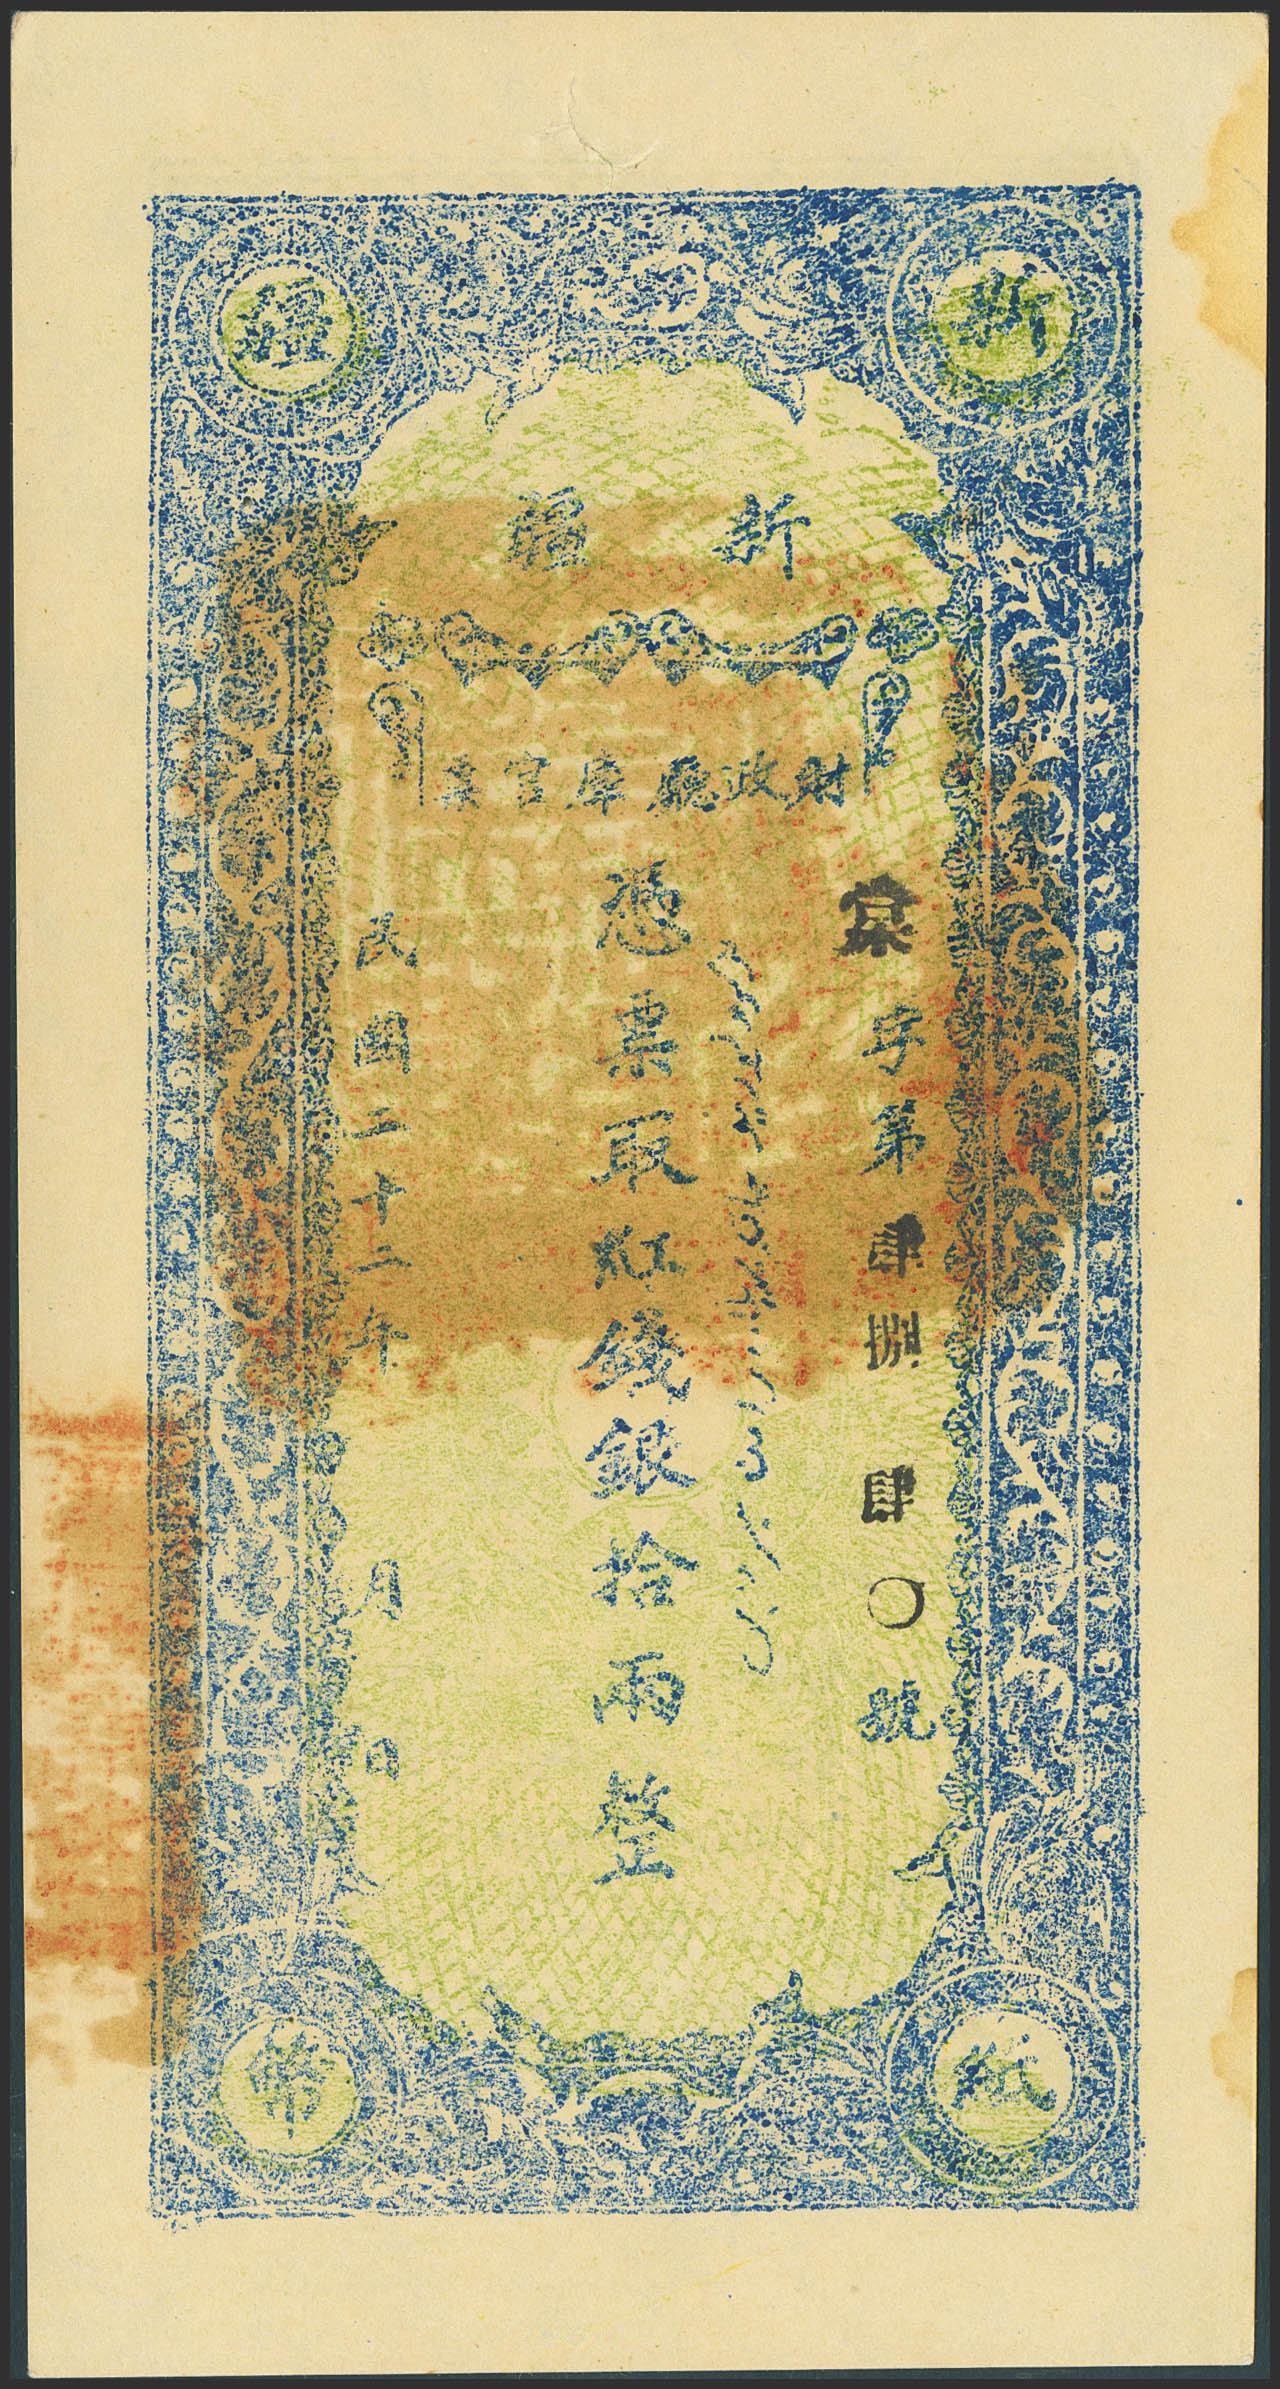 新疆
新疆
財政廳庫官票
棠字第肆捌肆〇號
憑票取紅錢銀拾兩整
民國二十二年 月 日
紙幣